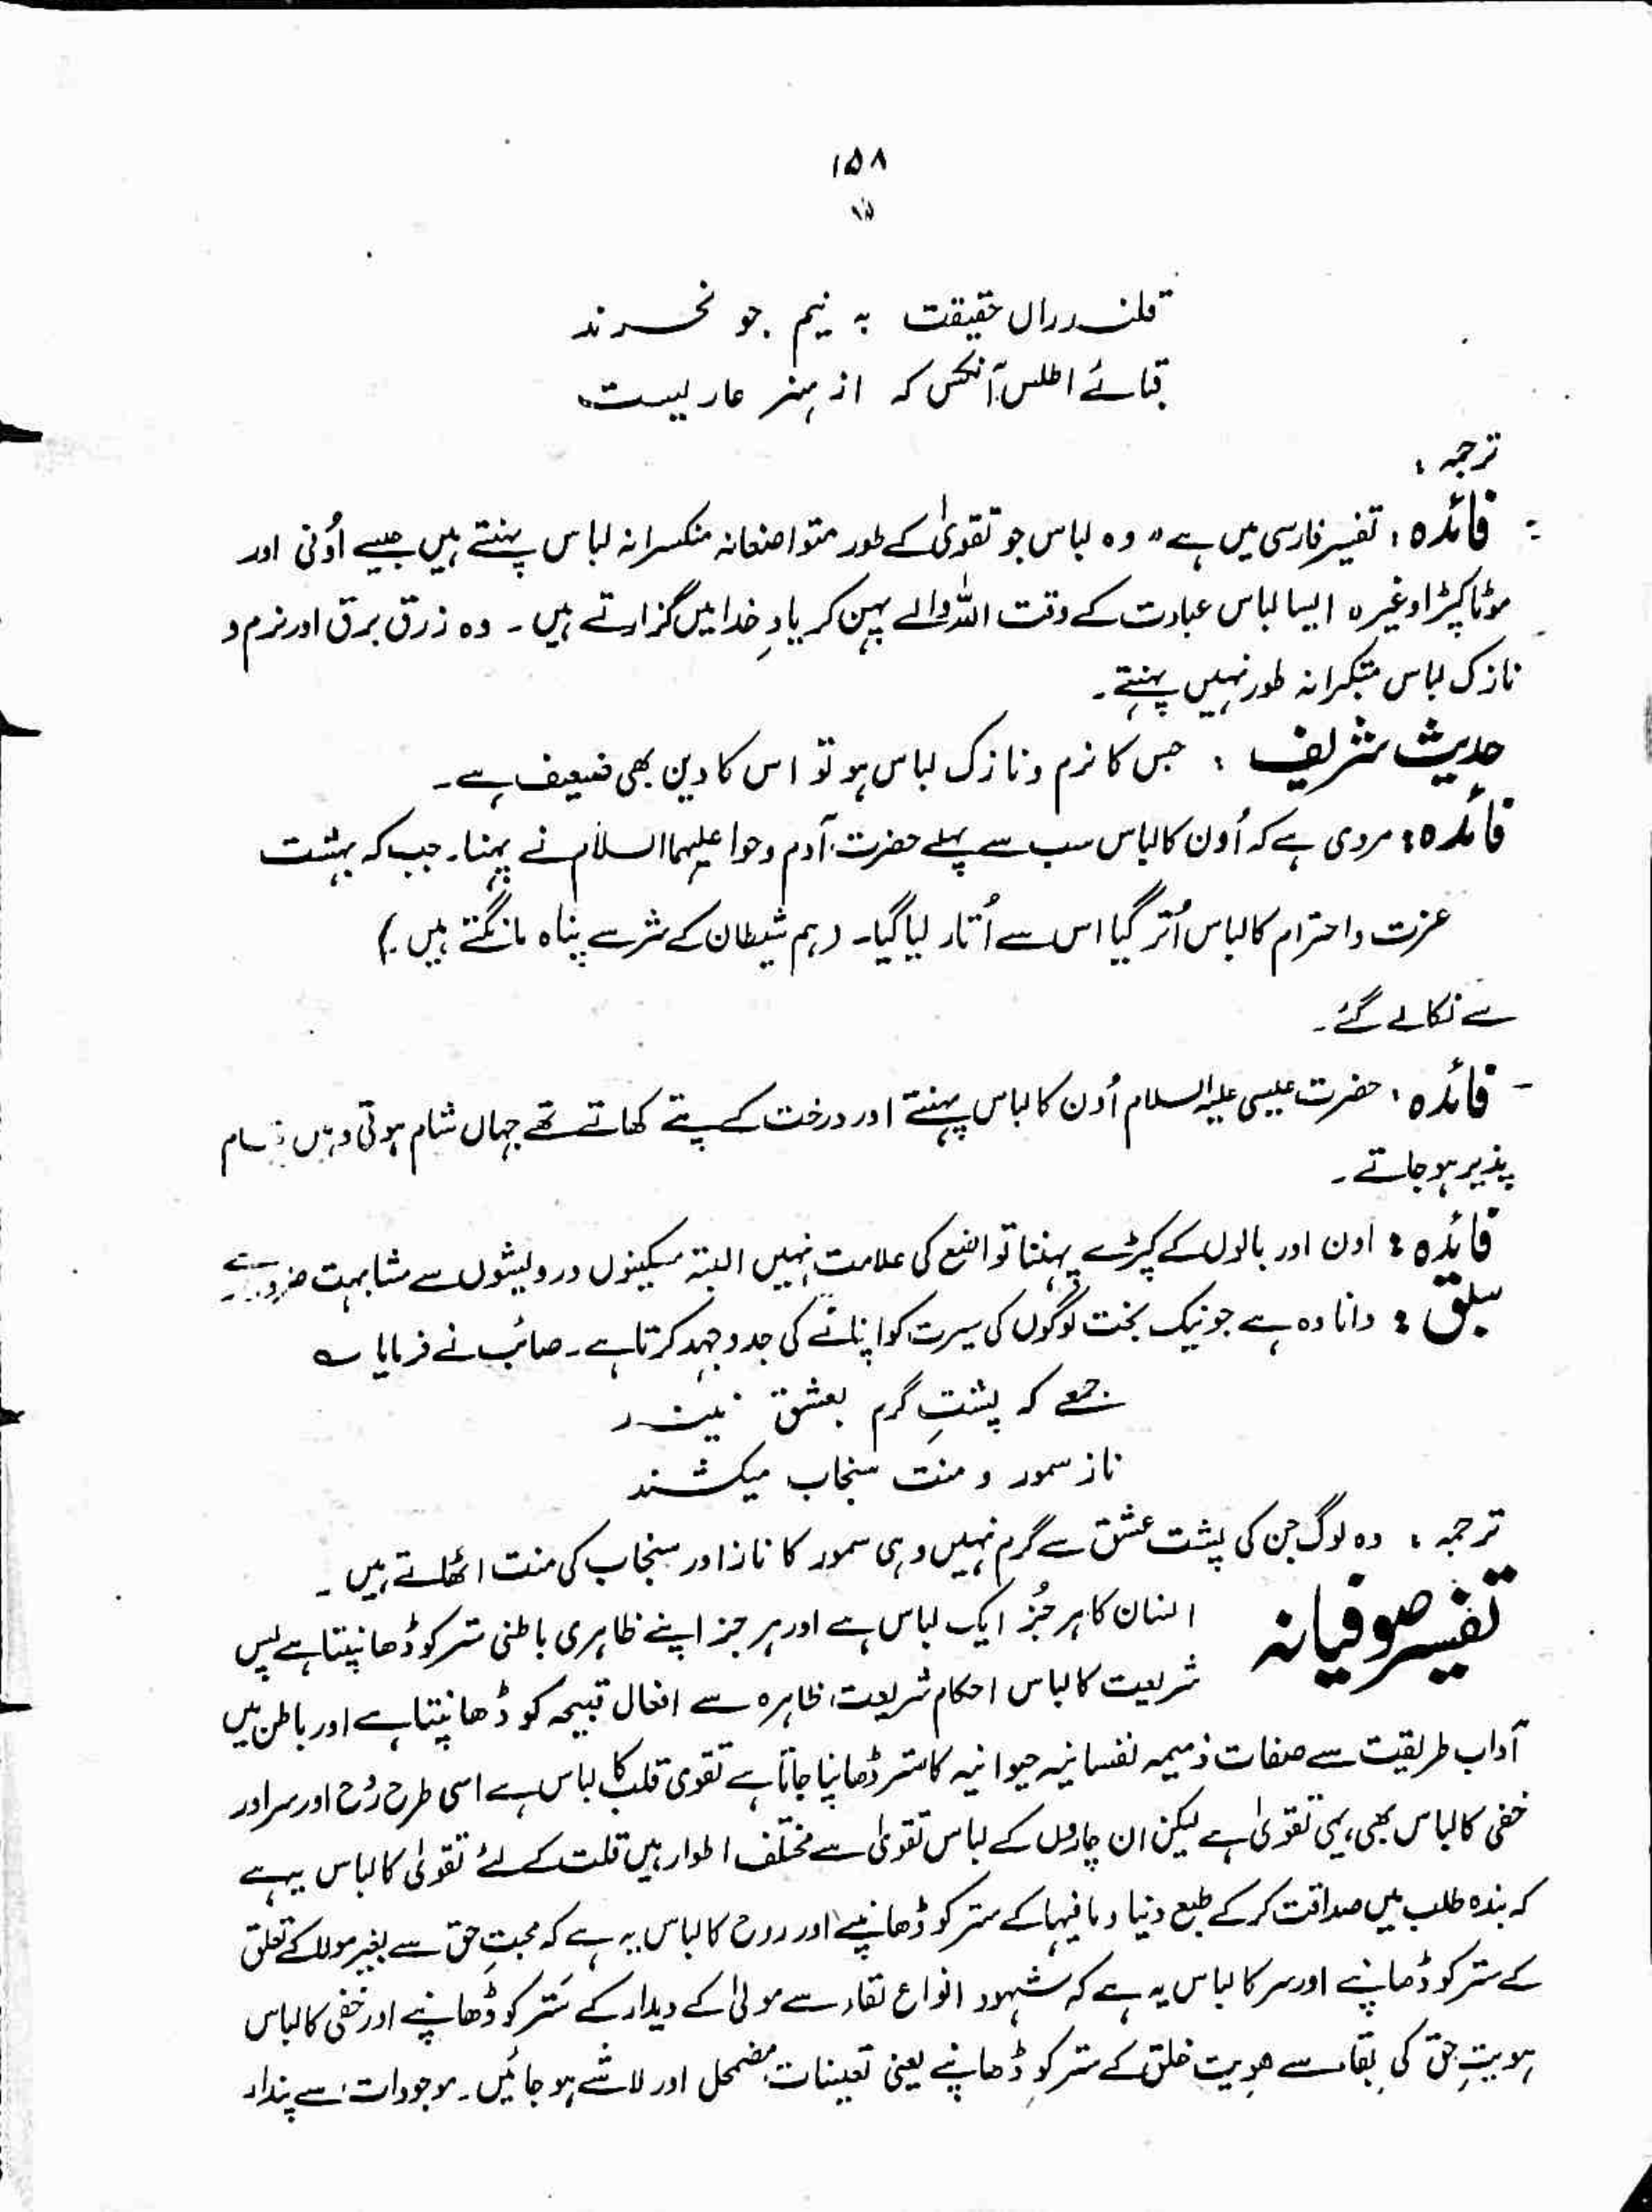 ۱۵۸
قلندران حقیقت بہ نیم جو نخرند
قبائے اطلس آنکس کہ از ہنر عاریست
ترجمہ :
فائدہ : تفسیر فارسی میں ہے " وہ لباس جو تقویٰ کے طور متواضعانہ منکسرانہ لباس پہنتے ہیں جیسے اُونی اور
موٹا کپڑا وغیرہ ایسا لباس عبادت کے وقت اللہ والے پہن کر یادِ خدا میں گزارتے ہیں ۔ وہ زرق برق اور نرم و
نازک لباس متکبرانہ طور نہیں پہنتے ۔
حدیث شریف : جس کا نرم و نازک لباس ہو تو اس کا دین بھی ضعیف ہے ۔
فائدہ : مروی ہے کہ اُون کا لباس سب سے پہلے حضرت آدم و حوا علیہما السلام نے پہنا ۔ جب کہ بہشت
عزت و احترام کا لباس اُتر گیا اس سے اُتار لیا گیا ۔ (ہم شیطان کے شر سے پناہ مانگتے ہیں ۔)
سے نکالے گئے ۔
فائدہ : حضرت عیسی علیہ السلام اُون کا لباس پہنتے اور درخت کے پتے کھاتے تھے جہاں شام ہوتی وہیں
پذیر ہو جاتے ۔
فائدہ : اون اور بالوں کے کپڑے پہننا تواضع کی علامت نہیں البتہ مسکینوں درویشوں سے مشابہت ضرور ہے ۔
سبق : دانا وہ ہے جو نیک بخت لوگوں کی سیرت کو اپنانے کی جدوجہد کرتا ہے ۔ صائب نے فرمایا ؎
جمعے کہ پشتِ گرم بعشق نیند
ناز سمور و منت سنجاب میکشند
ترجمہ : وہ لوگ جن کی پشت عشق سے گرم نہیں وہی سمور کا ناز اور سنجاب کی منت اٹھاتے ہیں ۔
تفسیر صوفیانہ انسان کا ہر جُز ایک لباس ہے اور ہر جز اپنے ظاہری باطنی ستر کو ڈھانپتا ہے پس
شریعت کا لباس احکام شریعت ظاہرہ سے افعال قبیحہ کو ڈھانپتا ہے اور باطن میں
آداب طریقت سے صفات ذمیمہ نفسانیہ حیوانیہ کا ستر ڈھانپا جاتا ہے تقوی قلب کا لباس ہے اسی طرح رُوح اور سر اور
خفی کا لباس بھی یہی تقویٰ ہے لیکن ان چاروں کے لباس تقویٰ سے مختلف اطوار ہیں قلت کے لئے تقویٰ کا لباس یہ ہے
کہ بندہ طلب میں صداقت کر کے طبع دنیا و ما فیہا کے ستر کو ڈھانپے اور روح کا لباس یہ ہے کہ محبتِ حق سے بغیر مولا کے تعلق
کے ستر کو ڈھانپے اور سر کا لباس یہ ہے کہ شہود انواع لقاء سے مولیٰ کے دیدار کے ستر کو ڈھانپے اور خفی کا لباس
ہویتِ حق کی بقاء سے ھویت خلق کے ستر کو ڈھانپے یعنی تعینات مضمحل اور لاشے ہو جائیں ۔ موجودات سے پندار